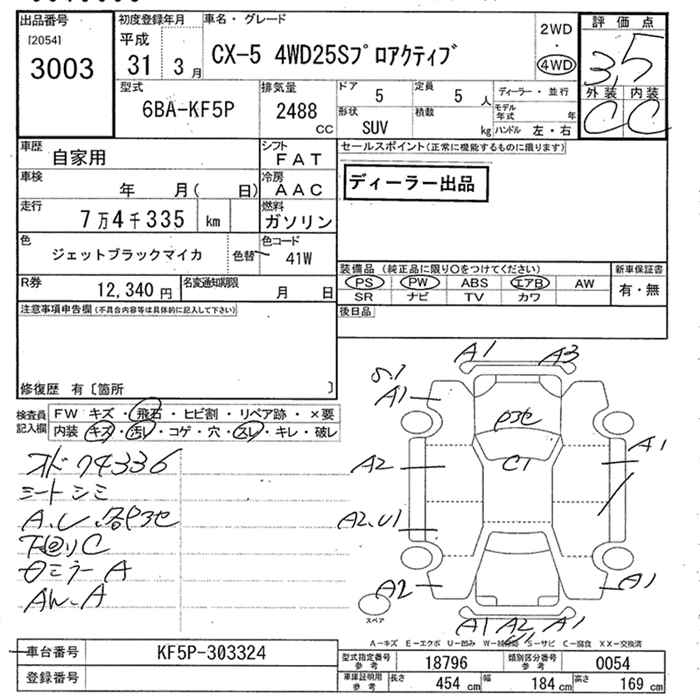 出品番号
[2054]
3003
初度登録年月
平成
31 3月
車名・グレード
CX-5 4WD25Sプロアクティブ
2WD
4WD
評価点
3.5
外装 内装
C C
型式
6BA-KF5P
排気量
2488
CC
ドア 5
形状
SUV
定員 5 人
積数 kg
ディーラー・並行
モデル年式 年
ハンドル 左・右
車歴
自家用
シフト
FAT
車検
年 月( 日)
冷房
AAC
走行
7万4千335 km
燃料
ガソリン
色
ジェットブラックマイカ
色替
色コード
41W
R券
12,340 円
名変通知期限
月 日
セールスポイント(正常に機能するものに限ります)
ディーラー出品
装備品 (純正品に限り○をつけてください)
PS PW ABS エアB AW
SR ナビ TV カワ
新車保証書
有・無
後日品
注意事項申告欄(不具合内容等は具体的に記入して下さい)
修復歴 有〔箇所 〕
検査員記入欄
FW キズ・飛石・ヒビ割・リペア跡・×要
内装 キズ・汚レ・コゲ・穴・スレ・キレ・破レ
オド 74336
シートシミ
下回りC
ミラーA
A1 A3
A1
A2
C1
A1
A2.U1
A2
A1
A1 A2 A1
スペア
A−キズ E−エクボ U−凹み W−補修跡 S−サビ C−腐食 XX−交換済
車台番号 KF5P-303324
登録番号
型式指定番号 参考 18796
類別区分番号 参考 0054
車庫証明用 参考 長さ 454 cm 幅 184 cm 高さ 169 cm